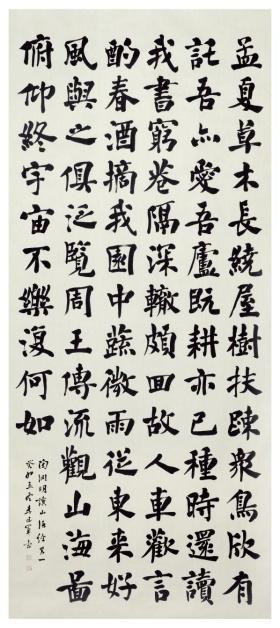 孟夏草木長繞屋樹扶踈衆鳥欣有
託吾亦愛吾廬既耕亦已種時還讀
我書窮巷隔深轍頗回故人車歡言
酌春酒摘我園中蔬微雨從東来好
風與之俱泛覽周王傳流觀山海圖
俯仰終宇宙不樂復何如
陶淵明讀山海經其一
癸卯立